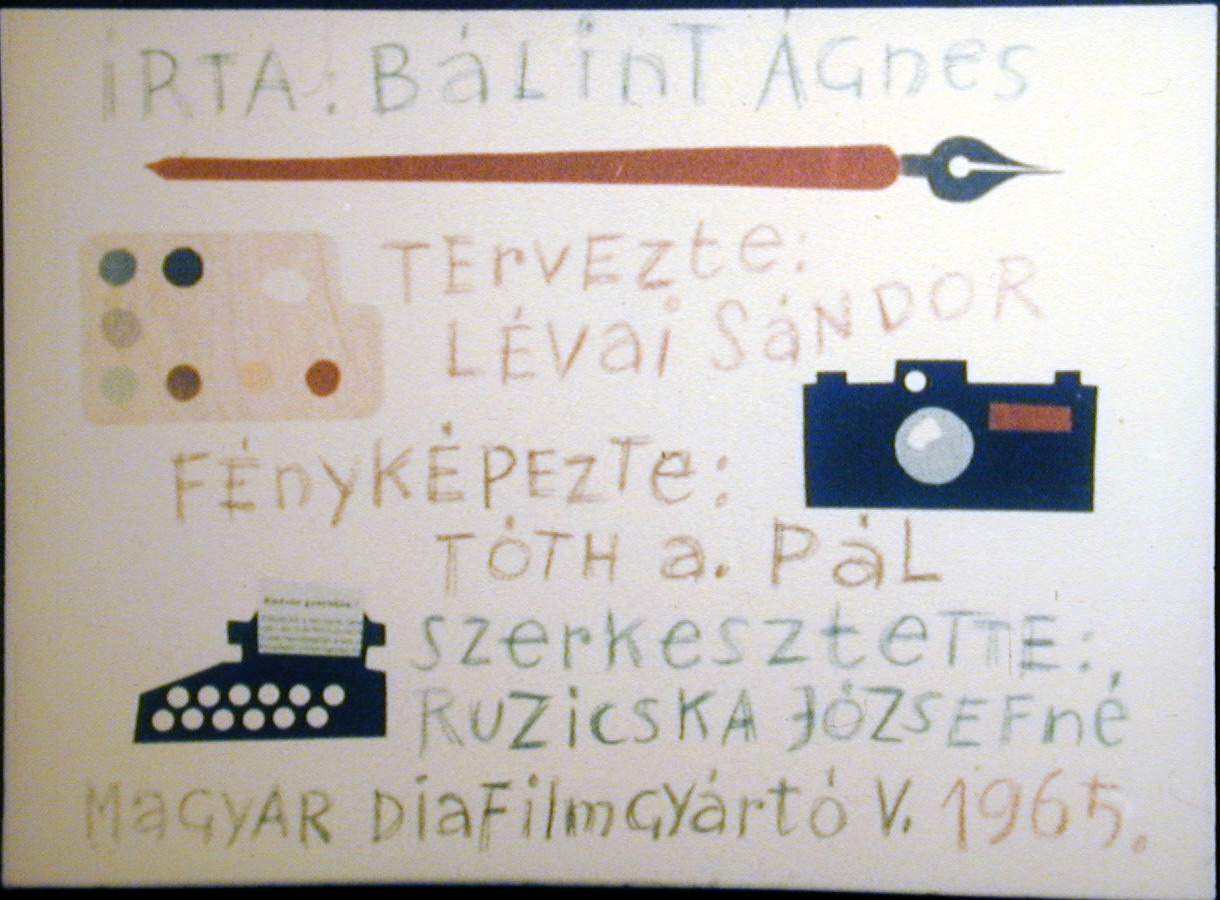 ÍRTA: BÁLinT ÁGnes
TErvEzte:
LÉVai SáNDOR
FÉnyKÉPEzTe:
TÓTH a. PáL
szerkeszteTTE:
RuZicsKA JÓZSEFné
MaGyAR DiaFilmGYártó V. 1965.